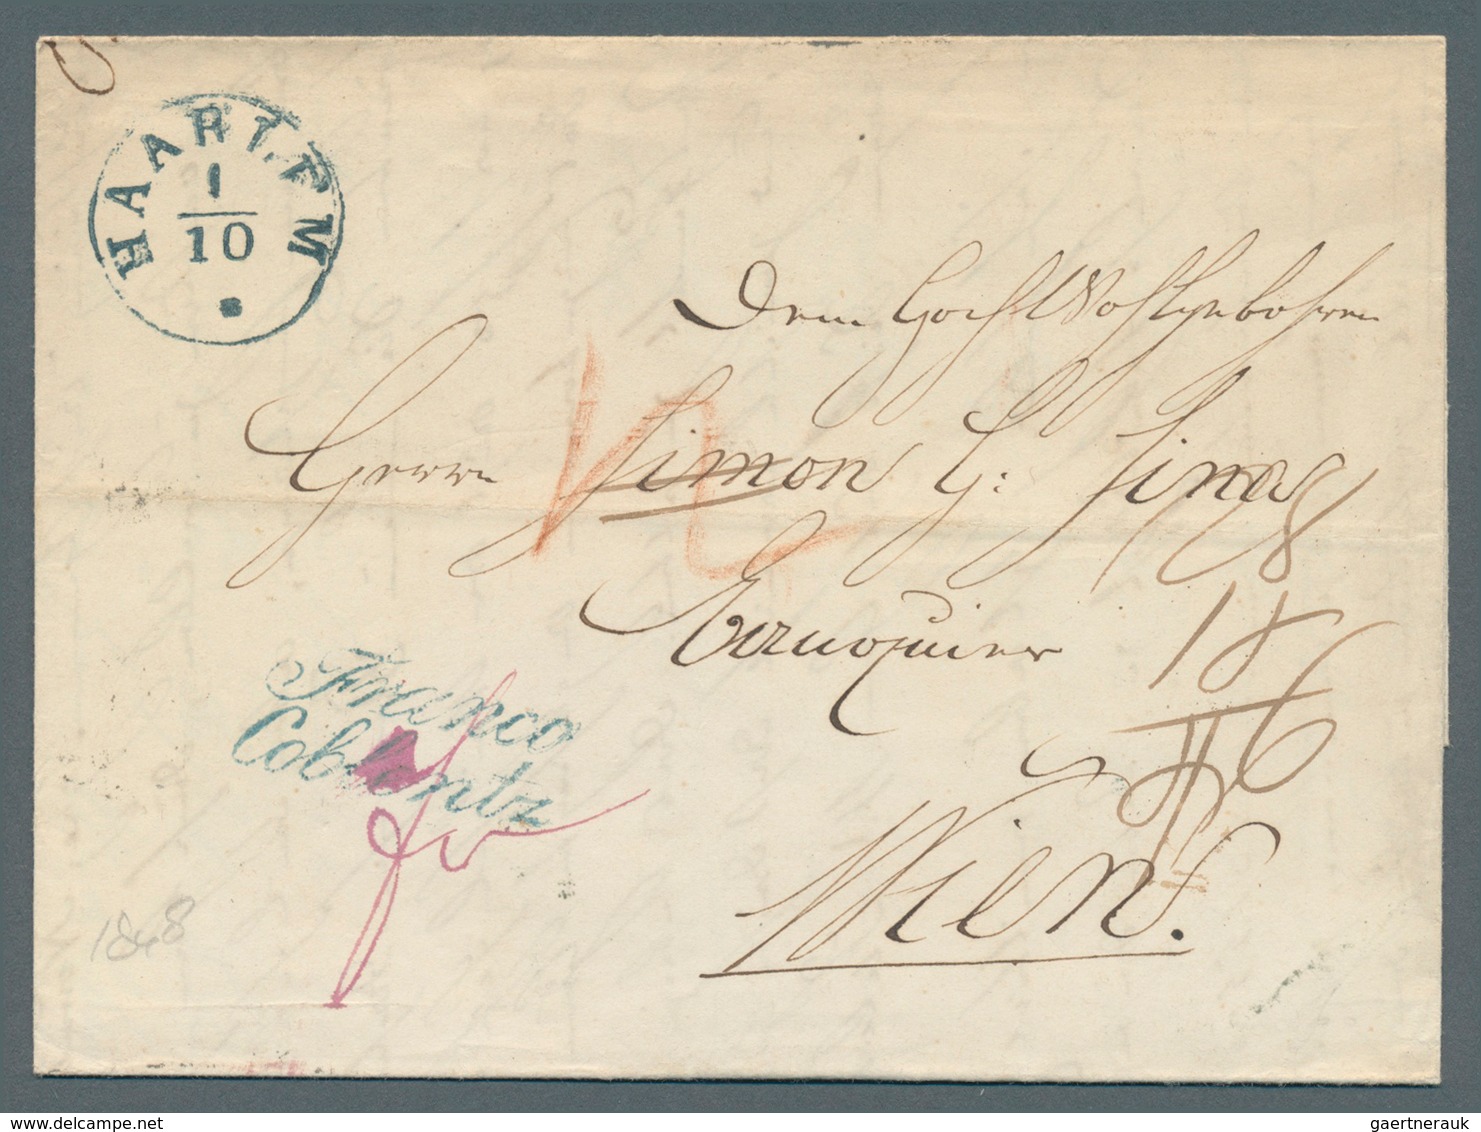 HAARLEM
1
10
Dem HochWohlgebohren
Herrn Simon G: Sina
Banquier
Wien.
Franco
Coblentz
1848
gaertnerauk